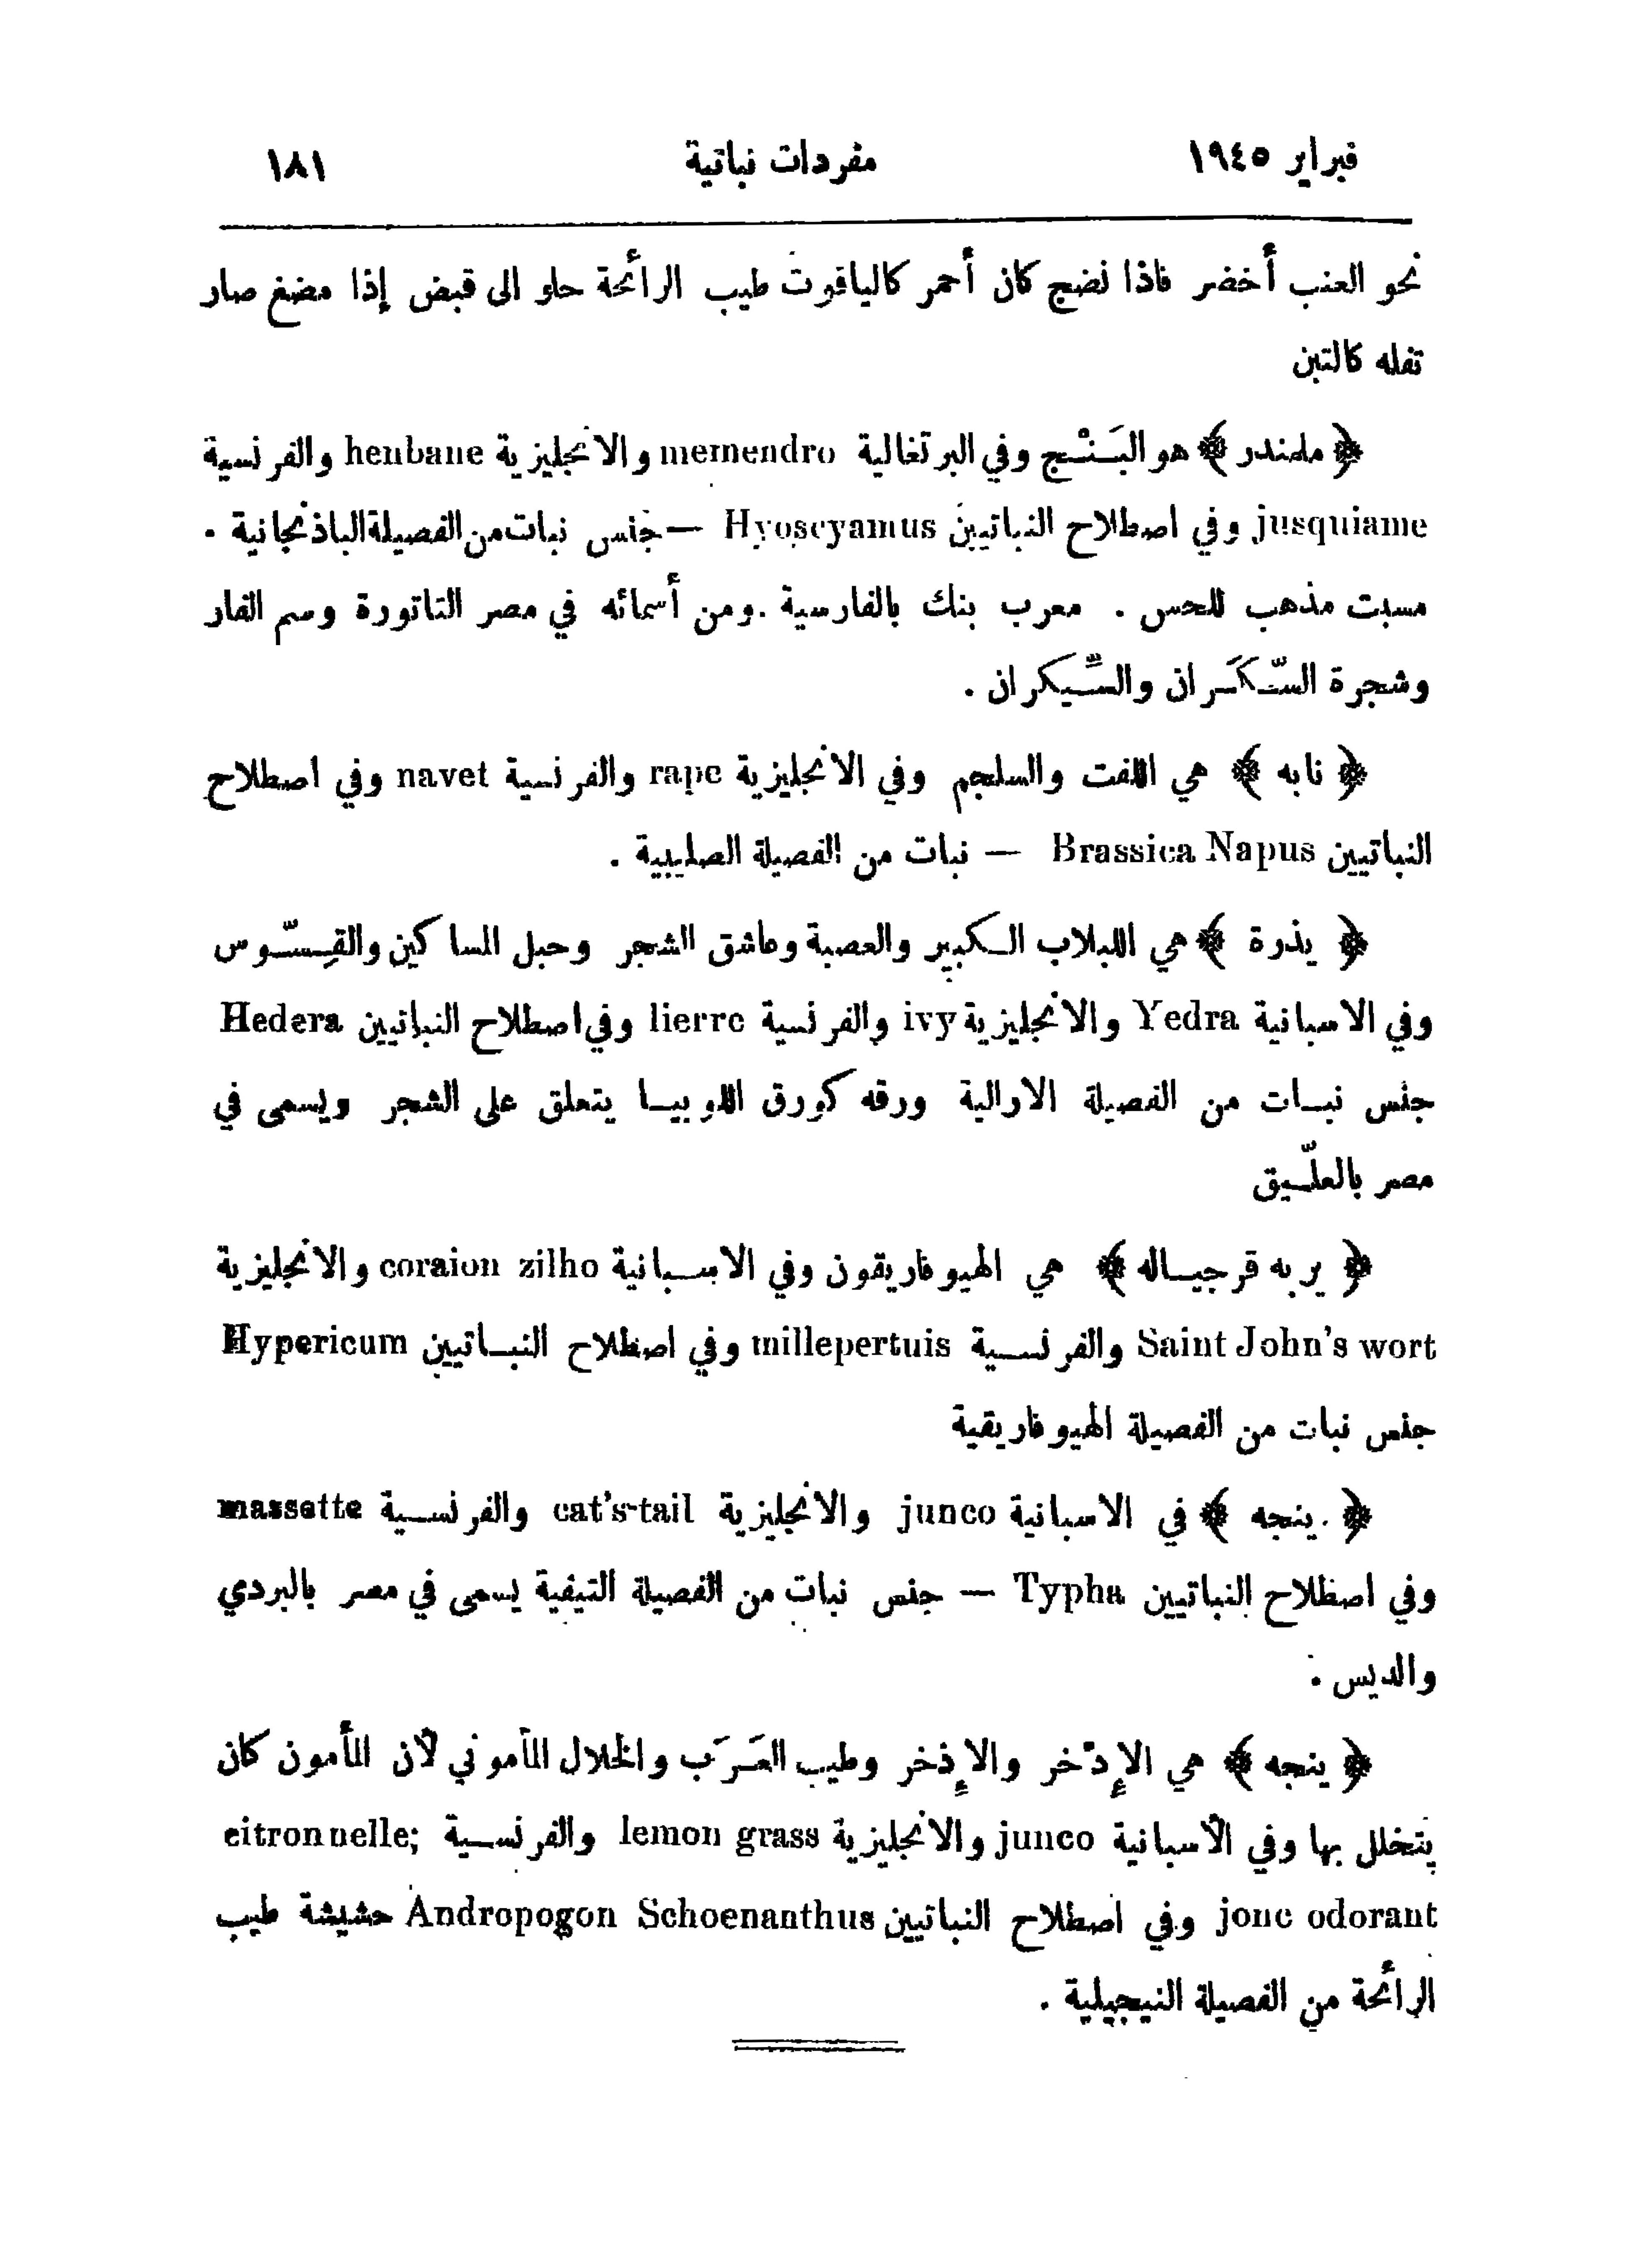 فبراير ١٩٤٥ مفردات نباتية ١٨١
نحو العنب أخضر فاذا نضج كان أحمر كالياقوت طيب الرائحة حلو الى قبض إذا مضغ صار
تفله كالتبن
﴿ ملمندر ﴾ هو البَنْج وفي البرتغالية memendro والانجليزية henbane والفرنسية
jusquiame وفي اصطلاح النباتيين Hyoscyamus — جنس نبات من الفصيلة الباذنجانية .
مسبت مذهب للحس . معرب بنك بالفارسية . ومن أسمائه في مصر التاتورة وسم الفار
وشجرة السّكَران والسِّيكران .
﴿ نابه ﴾ هي اللفت والسلجم وفي الانجليزية rape والفرنسية navet وفي اصطلاح
النباتيين Brassica Napus — نبات من الفصيلة الصليبية .
﴿ يذرة ﴾ هي اللبلاب الكبير والعصبة وعاشق الشجر وحبل المساكين والقِسّوس
وفي الاسبانية Yedra والانجليزية ivy والفرنسية lierre وفي اصطلاح النباتيين Hedera
جنس نبات من الفصيلة الارالية ورقه كورق اللوبيا يتعلق على الشجر ويسمى في
مصر بالعلّيق
﴿ يربه قرجياله ﴾ هي الهيوفاريقون وفي الاسبانية coraion zilho والانجليزية
Saint John's wort والفرنسية millepertuis وفي اصطلاح النباتيين Hypericum
جنس نبات من الفصيلة الهيوفاريقية
﴿ ينجه ﴾ في الاسبانية junco والانجليزية cat's-tail والفرنسية massette
وفي اصطلاح النباتيين Typha — جنس نبات من الفصيلة التيفية يسمى في مصر بالبردي
والديس .
﴿ ينجه ﴾ هي الإدّخر والإذخر وطيب العَرَب والخلال المأموني لأن المأمون كان
يتخلل بها وفي الأسبانية junco والانجليزية lemon grass والفرنسية citronnelle;
jonc odorant وفي اصطلاح النباتيين Andropogon Schoenanthus حشيشة طيب
الرائحة من الفصيلة النجيلية .